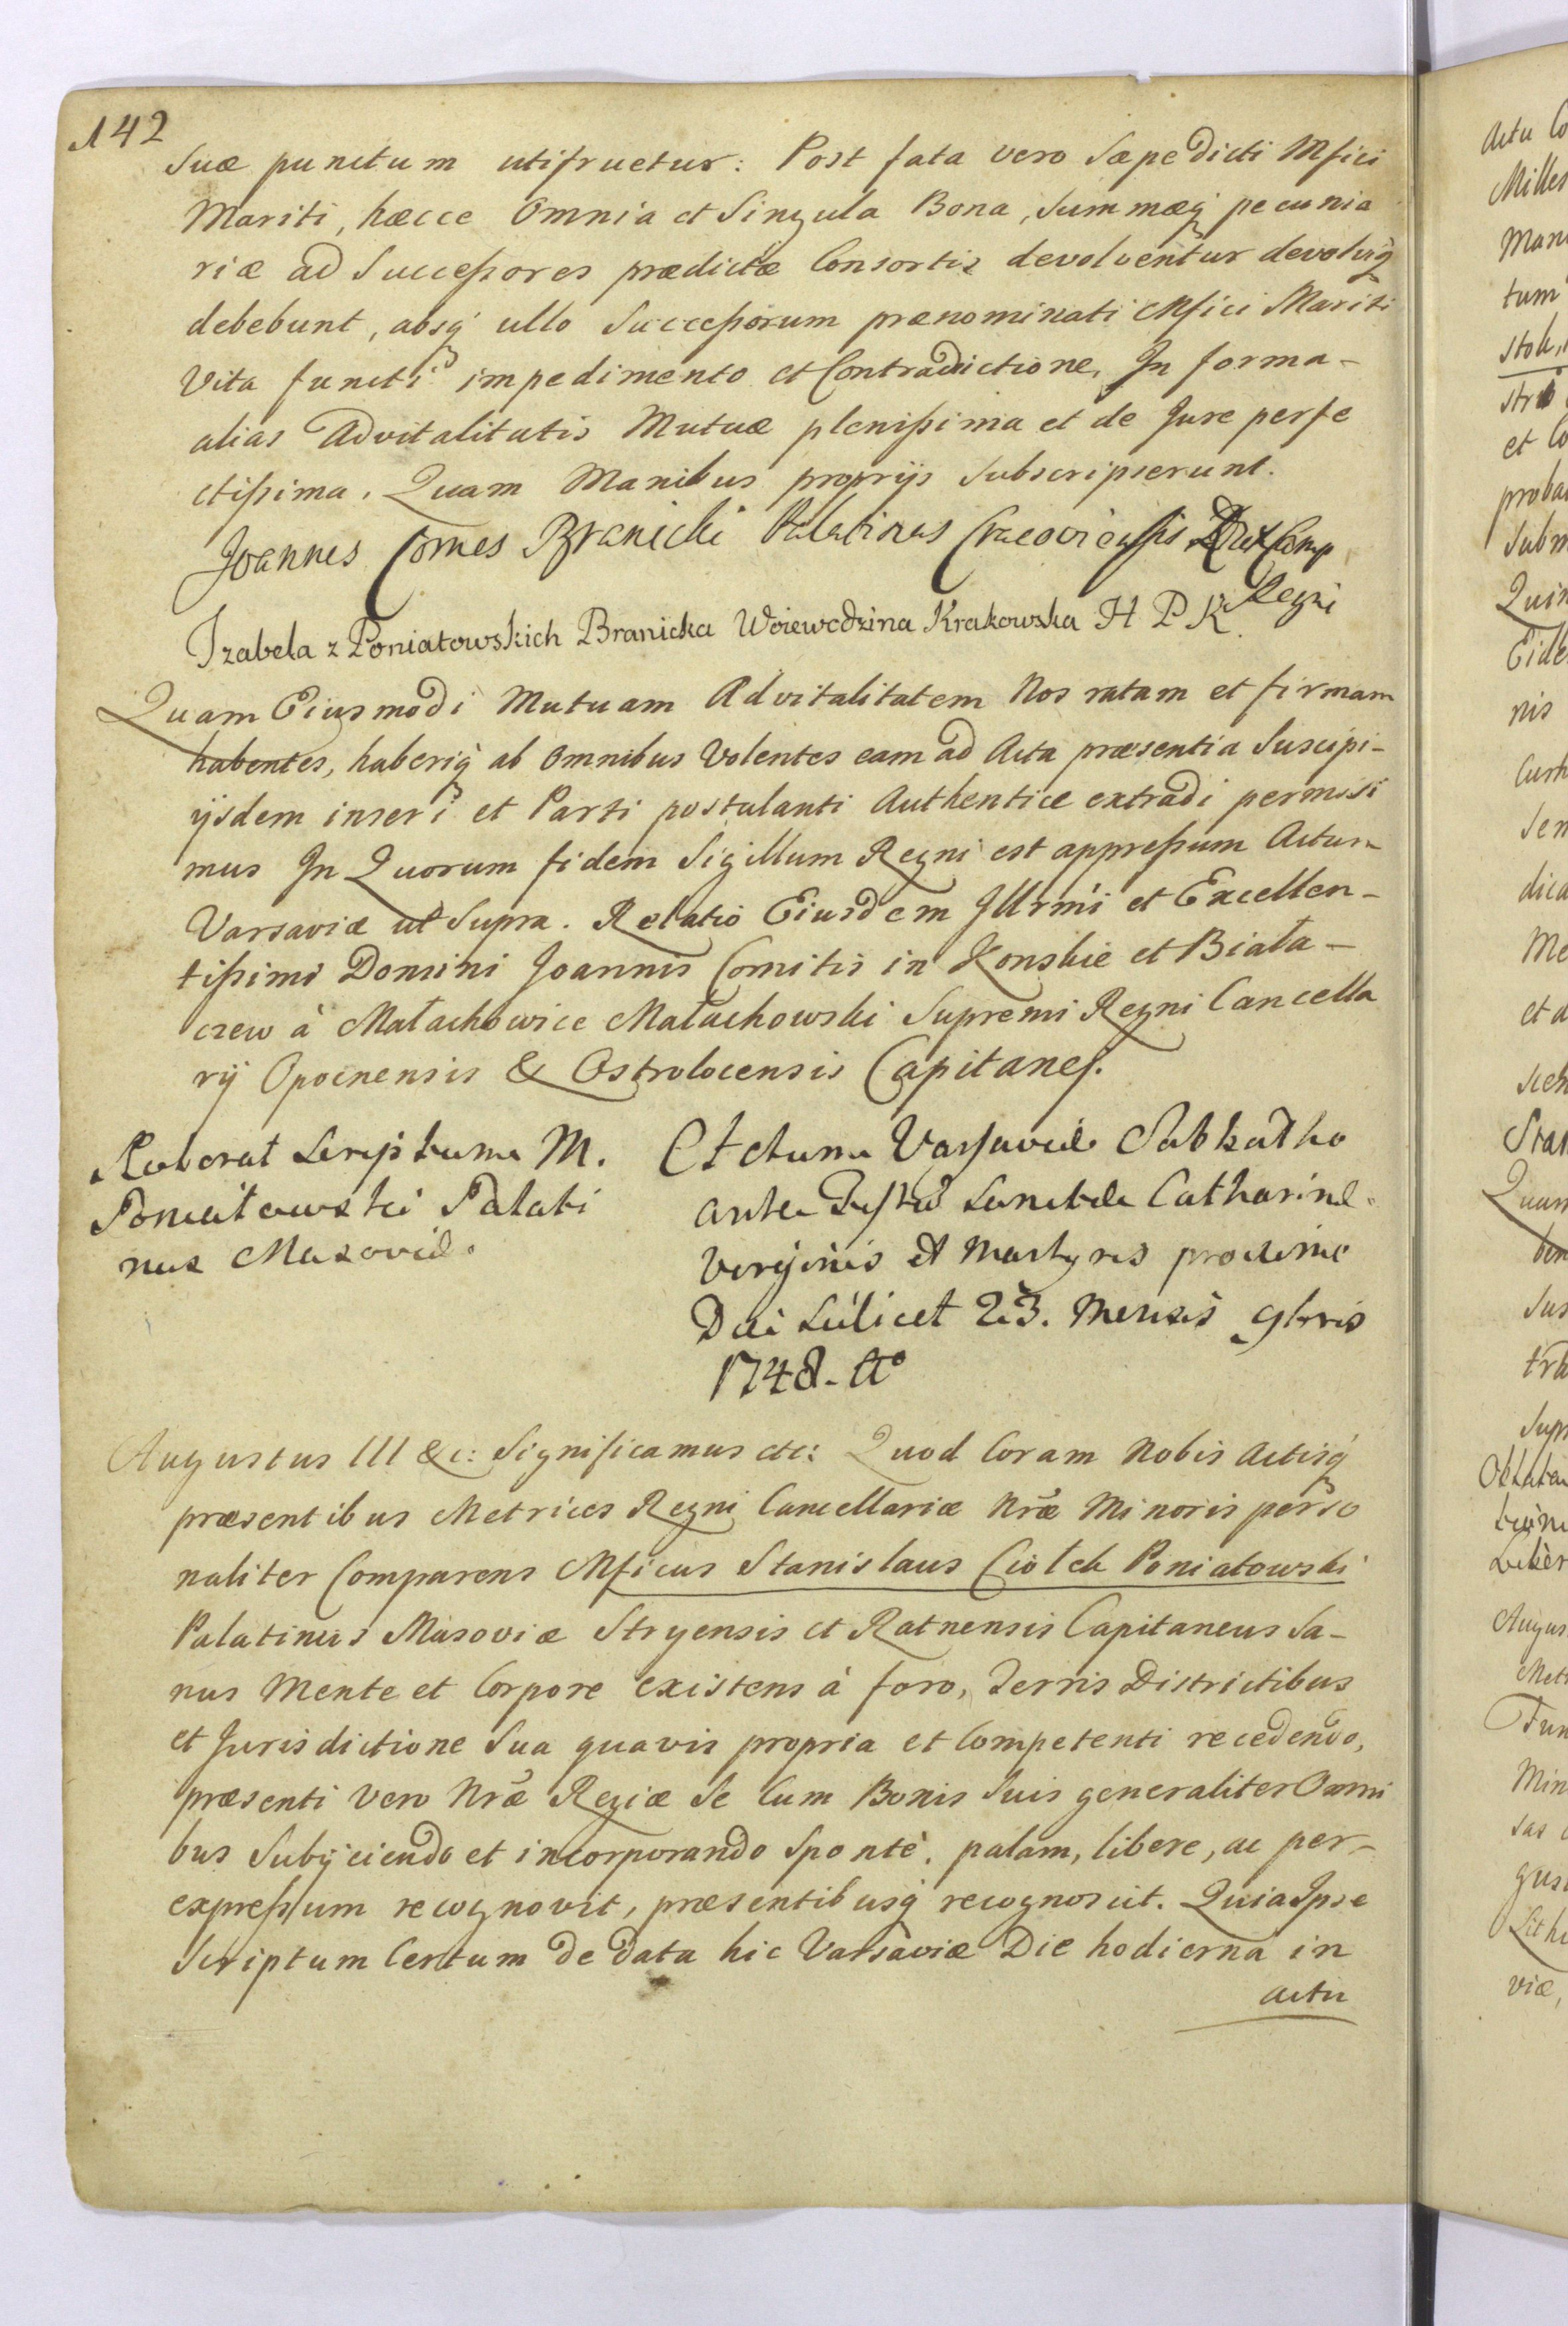 142
Suæ punctum utifruetur: Post fata vero Sæpe dicti Mfici
Mariti, hæcce Omnia et Singula Bona, Summæq́ pecunia
riæ ad Succeßores prædictæ Consortis devolventur devolviq́
debebunt, absq́ ullo Succeßorum prænominati Mfici Mariti
Vita functi impedimento et Contradictione, In forma-
alias Advitalitatis Mutuæ plenißima et de Jure perfe
ctißima. Quam Manibus proprijs Subscripserunt.
Joannes Comes Branicki Palatinus Cracoviensis Dux Camp
Regni
Izabela z Poniatowskich Branicka Woiewodzina Krakowska H P K
Quam Eiusmodi Mutuam Advitalitatem Nos ratam et firmam
habentes, haberiq́ ab Omnibus Volentes eam ad Acta præsentia Suscipi-
ijsdem inseri et Parti postulanti Authentice extradi permisi
mus In Quorum fidem Sigillum Regni est appreßum Actum
Varsaviæ ut Supra. Relatio Eiusdem Illrmi et Excellen-
tißimi Domini Joannis Comitis in Konskie et Biała-
czew à Małachowice Małachowski Supremi Regni Cancella
rij Opocnensis & Ostrolocensis Capitanej.
Roborat Scriptum M.
Poniatowski Palati
nus Masoviæ.
Actum Varsaviæ Sabbatho
ante Festū Sanctæ Catharinæ
Virginis et Martyris proxime
Die Scilicet 23. Mensis 9bris
1748. Ao
Augustus III &c: Significamus etc: Quod Coram Nobis Actisq́
præsentibus Metrices Regni Cancellariæ Nræ Minoris perso
naliter Comparens Mficus Stanislaus Ciołek Poniatowski
Palatinus Masoviæ Stryensis et Ratnensis Capitaneus Sa-
nus Mente et Corpore existens à foro, Terris Districtibus
et Jurisdictione Sua quavis propria et Competenti recedendo,
præsenti vero Nræ Regiæ Se Cum Bonis Suis generaliter Omni
bus Subijciendo et incorporando Sponte, palam, libere, ac per-
expreßum recognovit, præsentibusq́ recognoscit. Quia Ipse
Scriptum Certum de data hic Varsaviæ Die hodierna in
actu